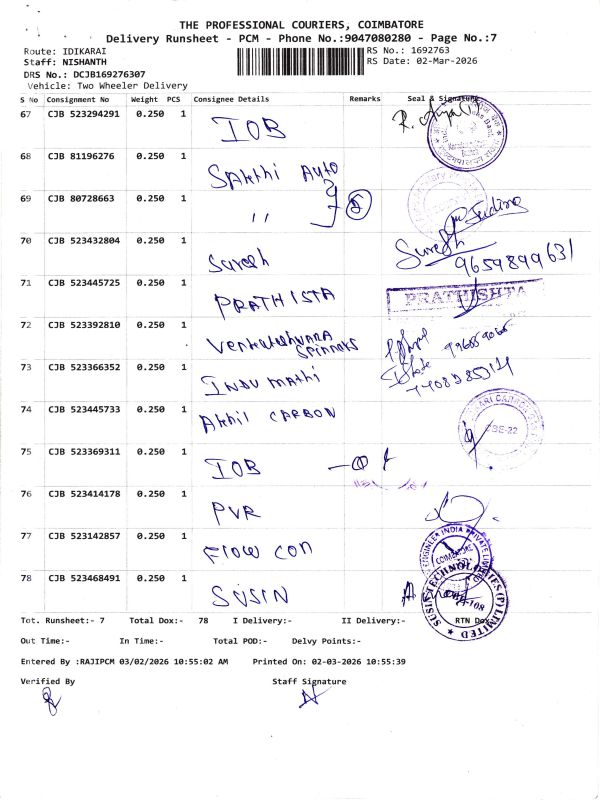 THE PROFESSIONAL COURIERS, COIMBATORE
Delivery Runsheet - PCM - Phone No.:9047080280 - Page No.:7
Route: IDIKARAI RS No.: 1692763
Staff: NISHANTH RS Date: 02-Mar-2026
DRS No.: DCJB169276307
Vehicle: Two Wheeler Delivery
S No Consignment No Weight PCS Consignee Details Remarks Seal & Signature
67 CJB 523294291 0.250 1 IOB
68 CJB 81196276 0.250 1 Sakthi Auto
69 CJB 80728663 0.250 1 ,,
70 CJB 523432804 0.250 1 Suresh Suresh
9659899631
71 CJB 523445725 0.250 1 PRATHISTA PRATHISHTA
72 CJB 523392810 0.250 1 Venkateshwara
Spinners
73 CJB 523366352 0.250 1 Indu mathi
74 CJB 523445733 0.250 1 Akhil CARBON
75 CJB 523369311 0.250 1 IOB
76 CJB 523414178 0.250 1 PVR
77 CJB 523142857 0.250 1 Flow con
COIMBATORE
78 CJB 523468491 0.250 1 SUSIN
SUSIN TECHNOLOGIES (P) LIMITED
Tot. Runsheet:- 7 Total Dox:- 78 I Delivery:- II Delivery:- RTN Dox
Out Time:- In Time:- Total POD:- Delvy Points:-
Entered By :RAJIPCM 03/02/2026 10:55:02 AM Printed On: 02-03-2026 10:55:39
Verified By Staff Signature